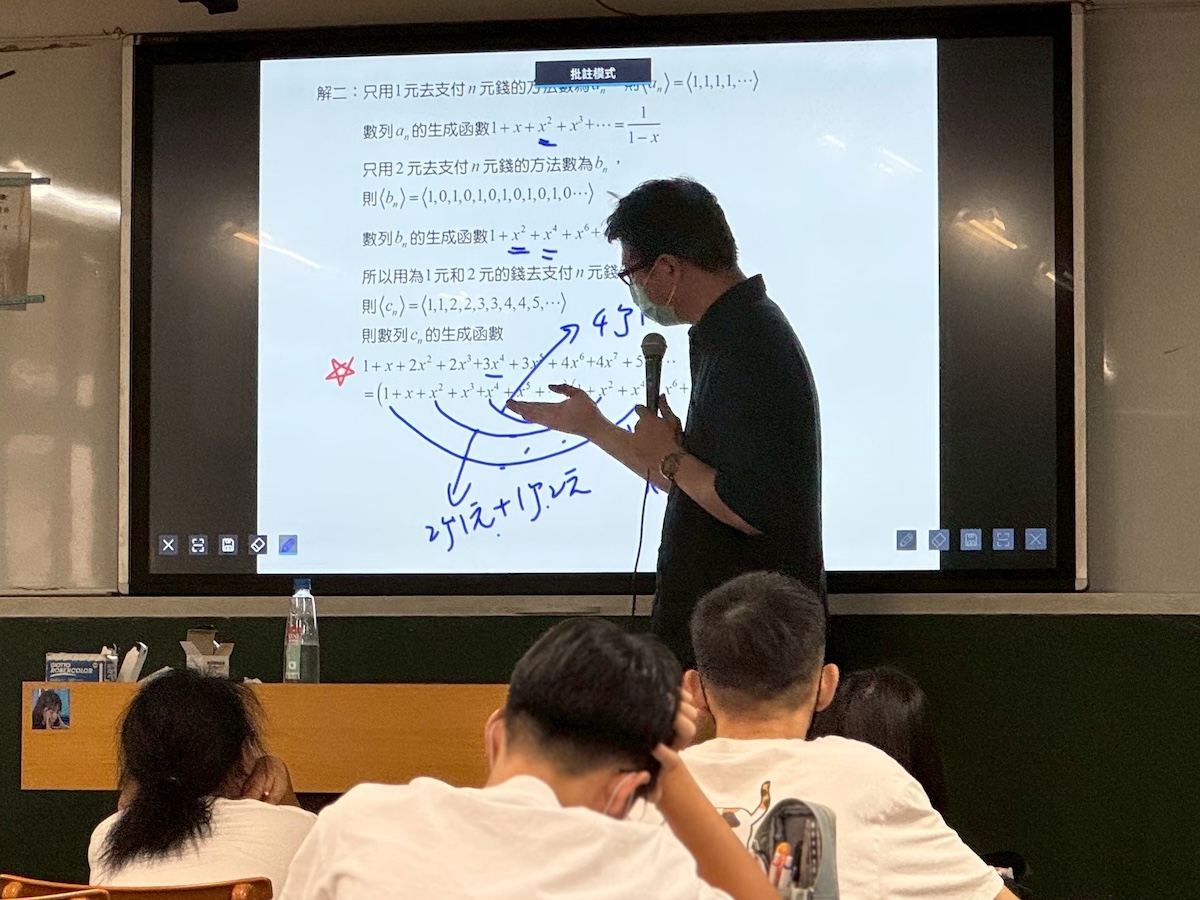 批註模式
解二：只用1元去支付n元錢的方法數為aₙ 則⟨aₙ⟩=⟨1,1,1,1,⋯⟩
數列aₙ的生成函數1+x+x²+x³+⋯=1/(1−x)
只用2元去支付n元錢的方法數為bₙ，
則⟨bₙ⟩=⟨1,0,1,0,1,0,1,0,1,0,1,0⋯⟩
數列bₙ的生成函數1+x²+x⁴+x⁶+
所以用為1元和2元的錢去支付n元錢
則⟨cₙ⟩=⟨1,1,2,2,3,3,4,4,5,⋯⟩
則數列cₙ的生成函數
4个1
1+x+2x²+2x³+3x⁴+3x⁵+4x⁶+4x⁷+5
=(1+x+x²+x³+x⁴+x⁵+ (1+x²+x⁴ x⁶+
2个1元+1个2元
GIOTTO
ROBERCOLOR